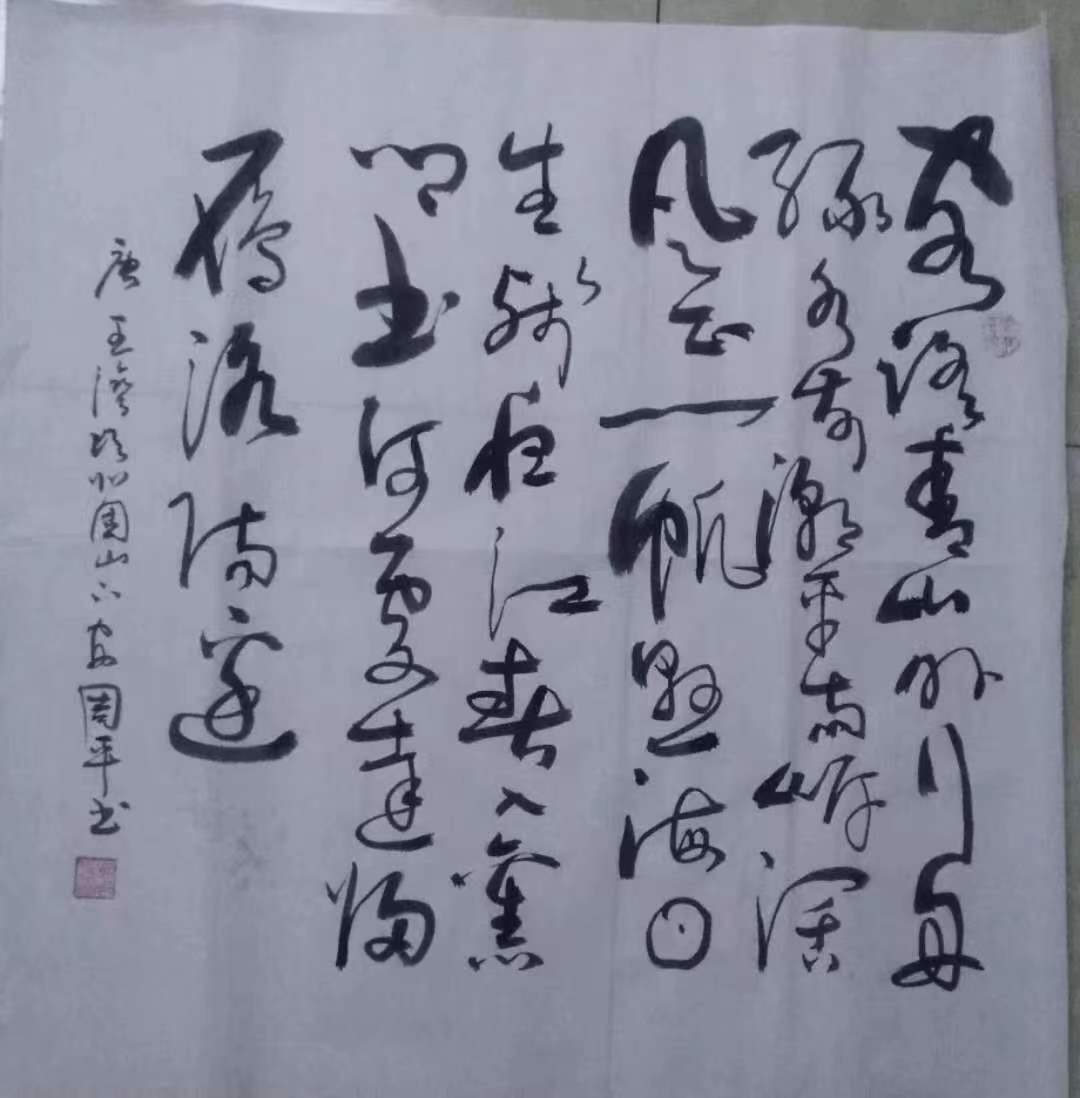 客路青山外行舟
绿水前潮平两岸阔
风正一帆悬海日
生残夜江春入舊
乡书何處達归
雁洛阳邊
唐王湾次北固山下 周平书